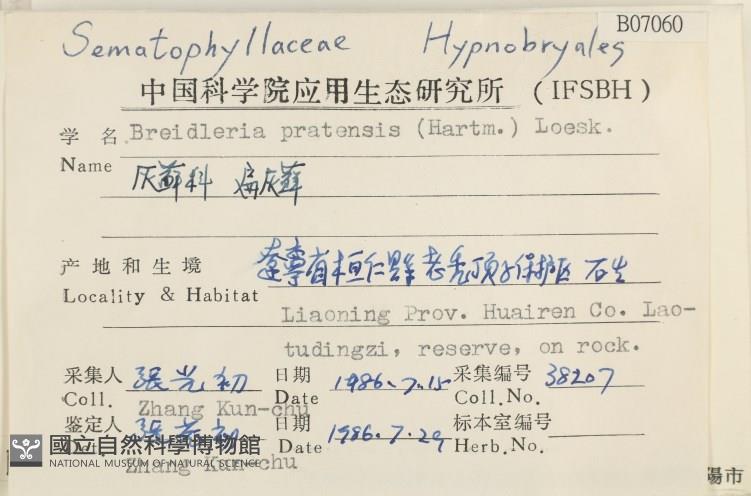 B07060
Sematophyllaceae Hypnobryales
中国科学院应用生态研究所 (IFSBH)
学 名 Breidleria pratensis (Hartm.) Loesk.
Name 灰藓科 扁灰藓
产地和生境 遼寧省桓仁縣老禿顶子保护区 石生
Locality & Habitat Liaoning Prov. Huairen Co. Lao-
tudingzi, reserve, on rock.
采集人 張光初 日期 1986.7.15 采集编号 38207
Coll. Zhang Kun-chu Date Coll.No.
鉴定人 張光初 日期 1986.7.29 标本室编号
Zhang Kun-chu Date Herb.No.
國立自然科學博物館
NATIONAL MUSEUM OF NATURAL SCIENCE
陽市